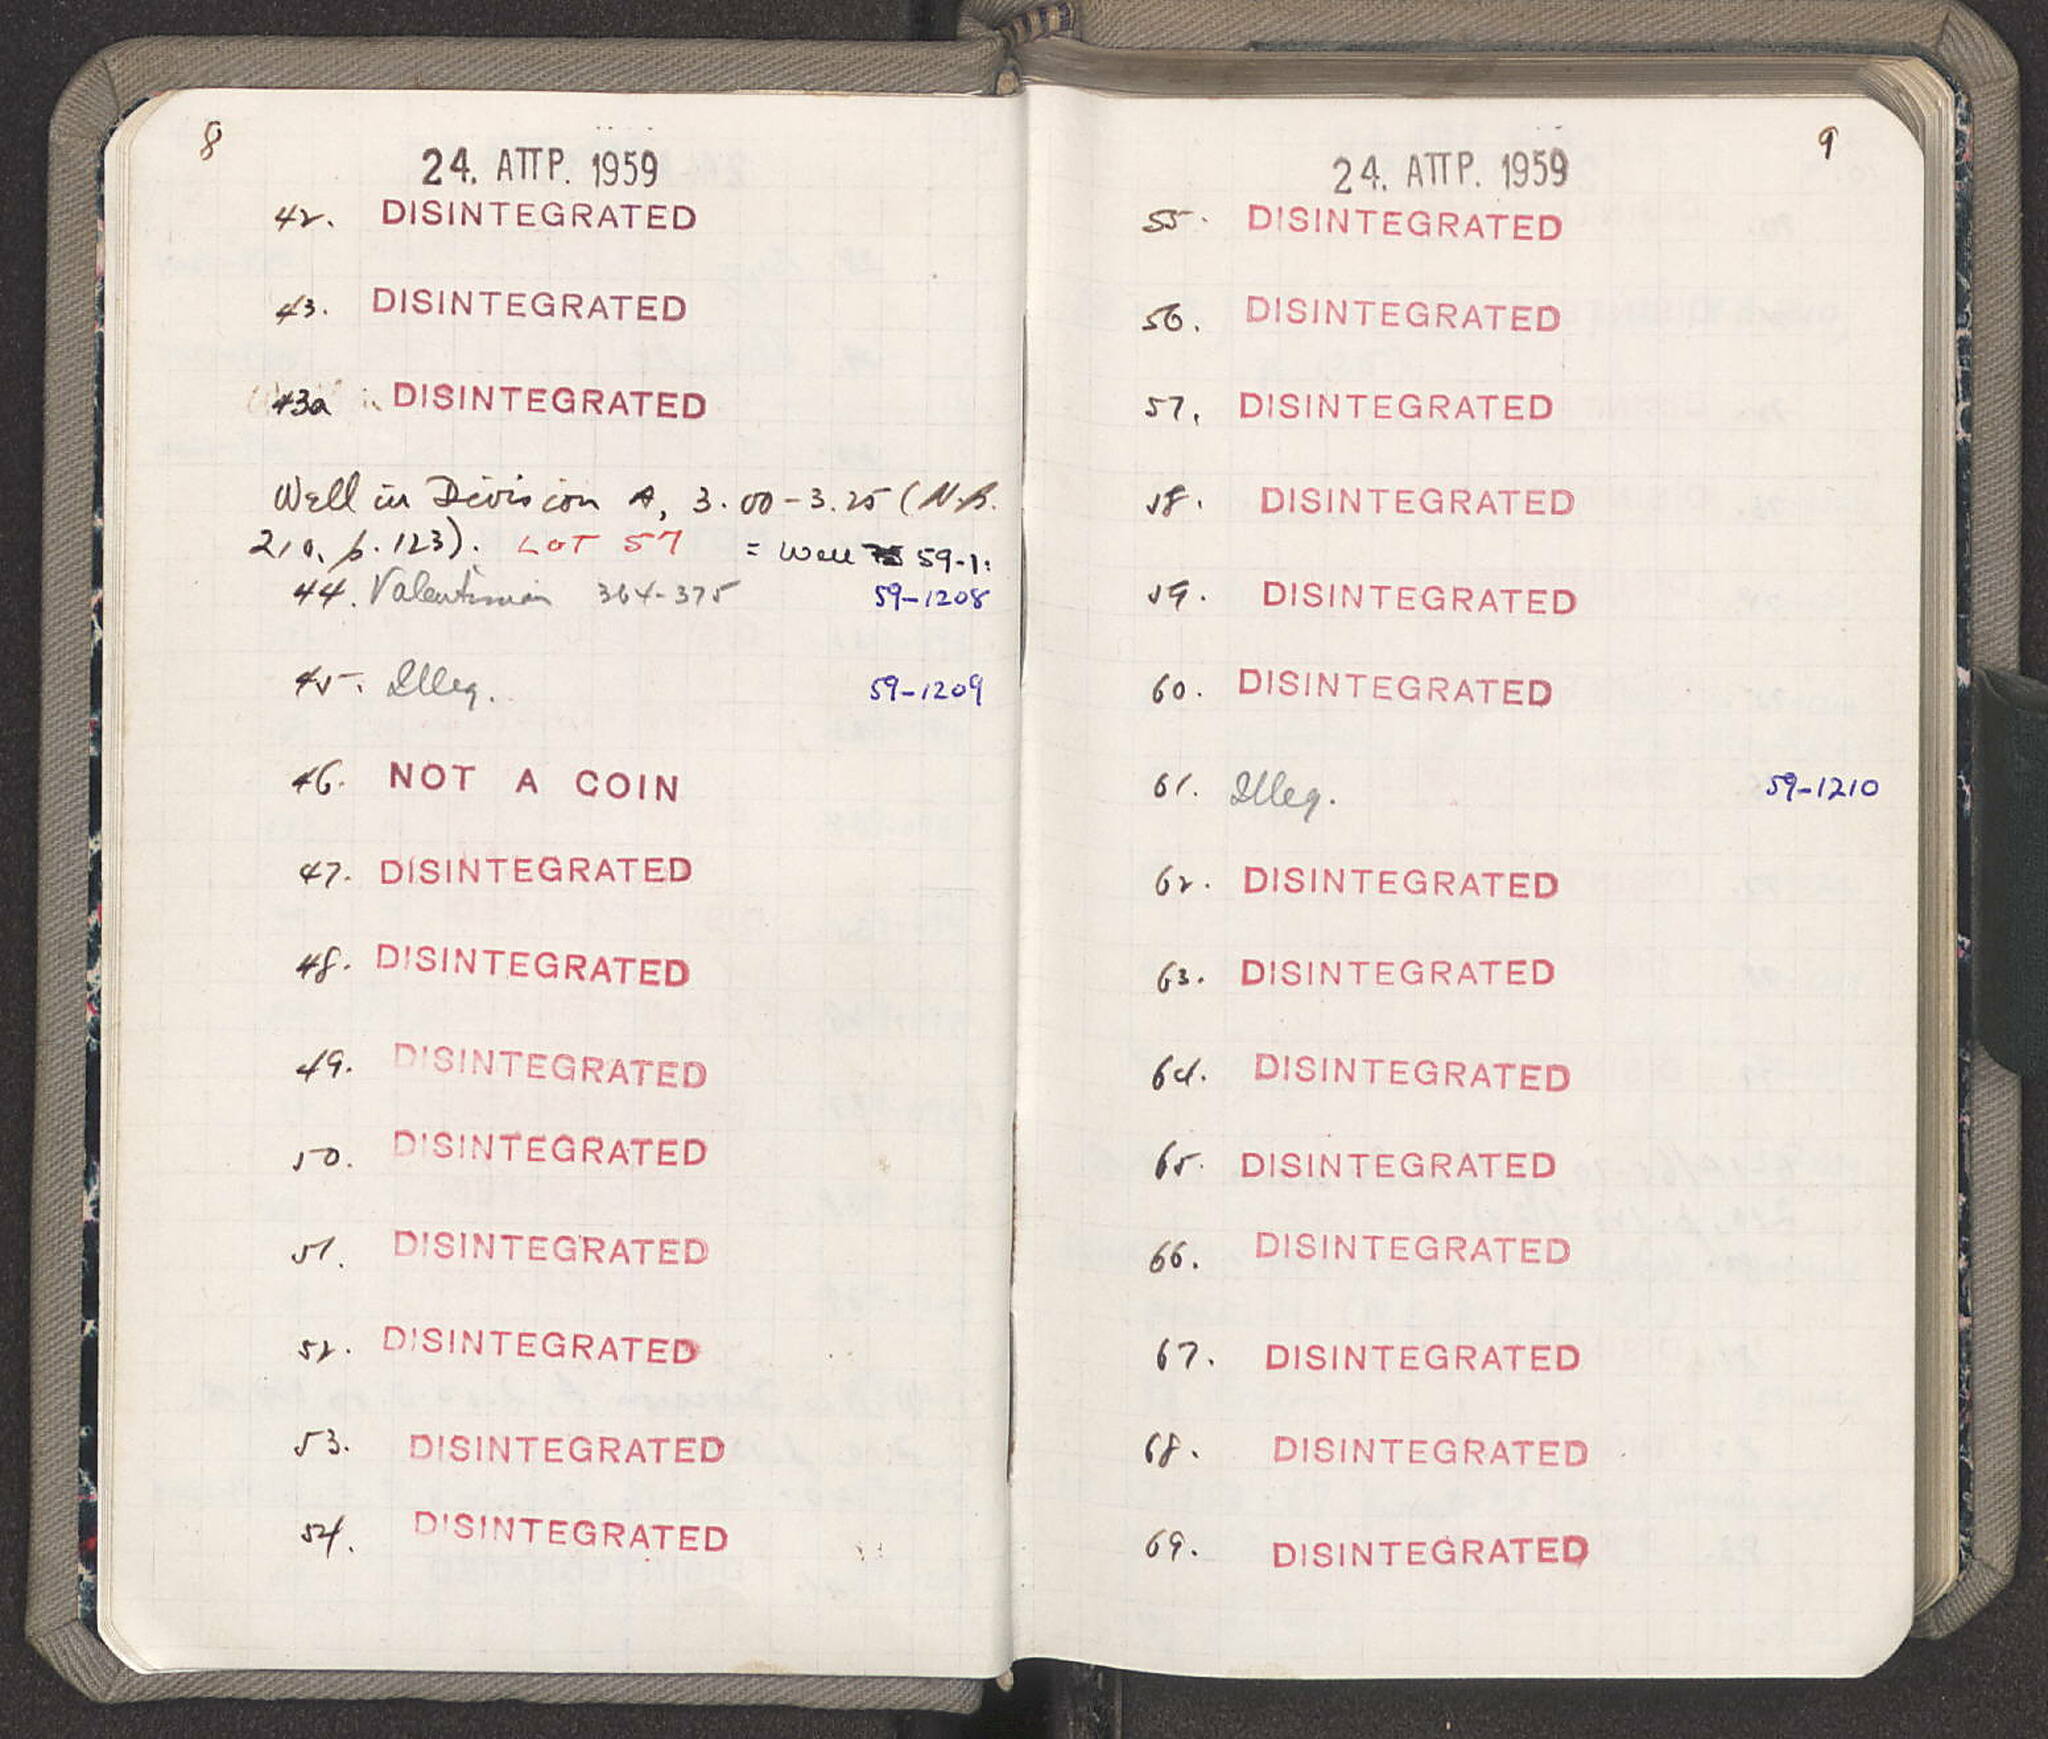 8
24. ΑΠΡ. 1959
42. DISINTEGRATED
43. DISINTEGRATED
43a DISINTEGRATED
Well in Division A, 3.00-3.25 (N.B.
210, p. 123). LOT 57 = Well 59-1:
44. Valentinian 364-375 59-1208
45. Illeg. 59-1209
46. NOT A COIN
47. DISINTEGRATED
48. DISINTEGRATED
49. DISINTEGRATED
50. DISINTEGRATED
51. DISINTEGRATED
52. DISINTEGRATED
53. DISINTEGRATED
54. DISINTEGRATED
9
24. ΑΠΡ. 1959
55. DISINTEGRATED
56. DISINTEGRATED
57. DISINTEGRATED
58. DISINTEGRATED
59. DISINTEGRATED
60. DISINTEGRATED
61. Illeg. 59-1210
62. DISINTEGRATED
63. DISINTEGRATED
64. DISINTEGRATED
65. DISINTEGRATED
66. DISINTEGRATED
67. DISINTEGRATED
68. DISINTEGRATED
69. DISINTEGRATED